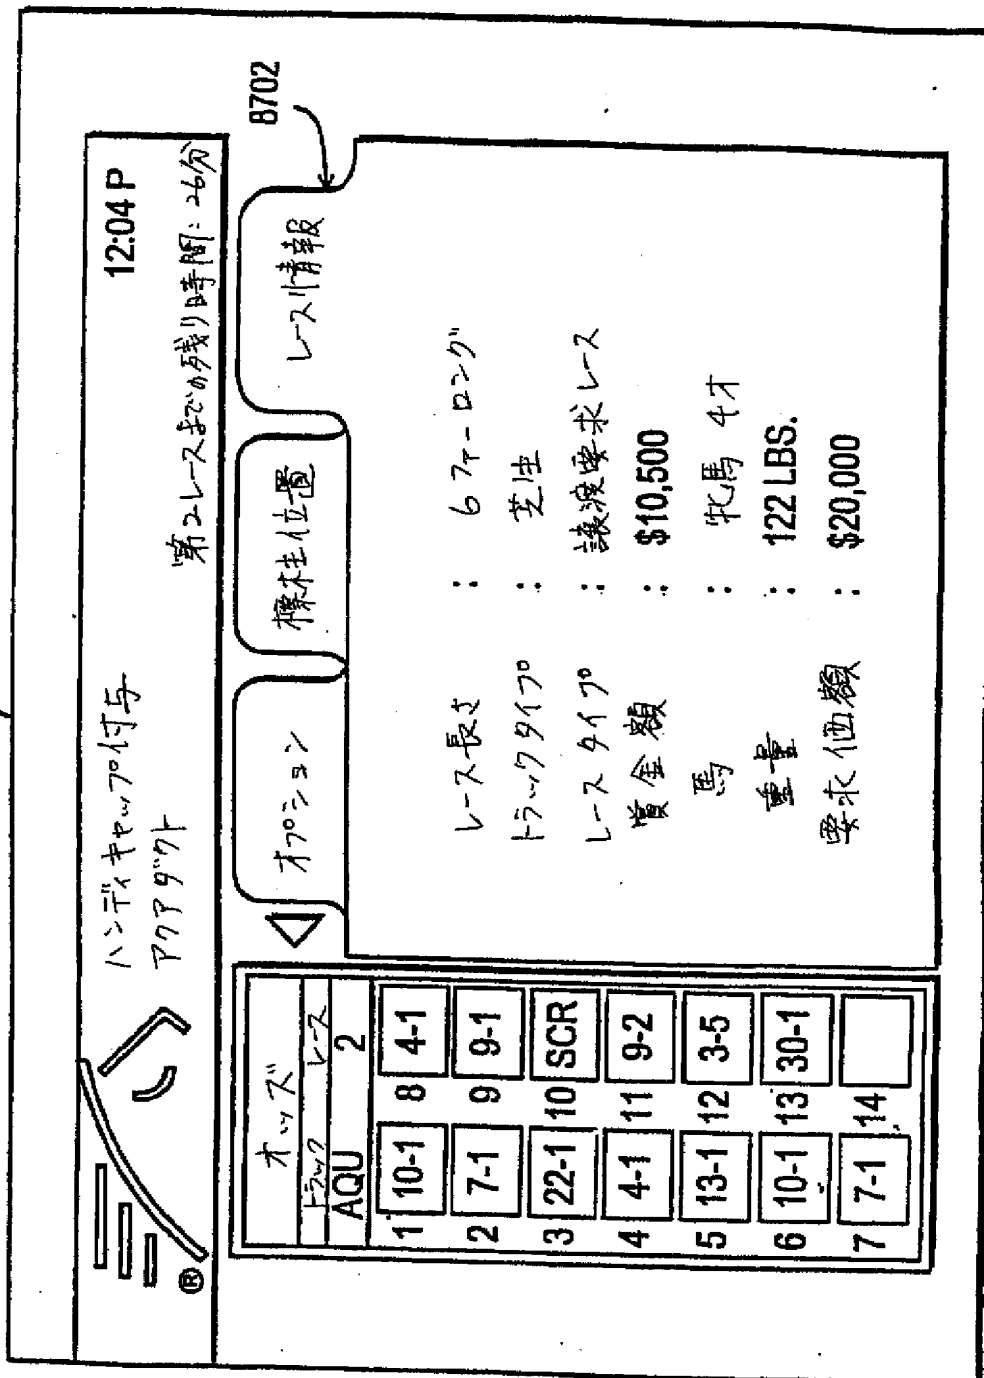 ハンディキャップ付与 12:04 P
アクアダクト 第2レースまでの残り時間: 26分
®
8702
オプション 標柱位置 レース情報
オッズ
トラック レース
AQU 2
1 10-1 8 4-1
2 7-1 9 9-1
3 22-1 10 SCR
4 4-1 11 9-2
5 13-1 12 3-5
6 10-1 13 30-1
7 7-1 14
レース長さ : 6 ファーロング
トラックタイプ : 芝生
レースタイプ : 譲渡要求レース
賞金額 : $10,500
馬 : 牝馬 4才
重量 : 122 LBS.
要求価額 : $20,000